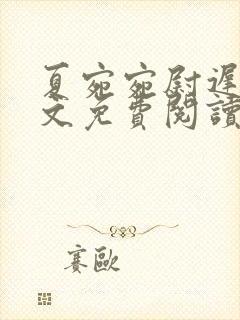 夏宛宛尉遲
文免費閱讀
賽歐